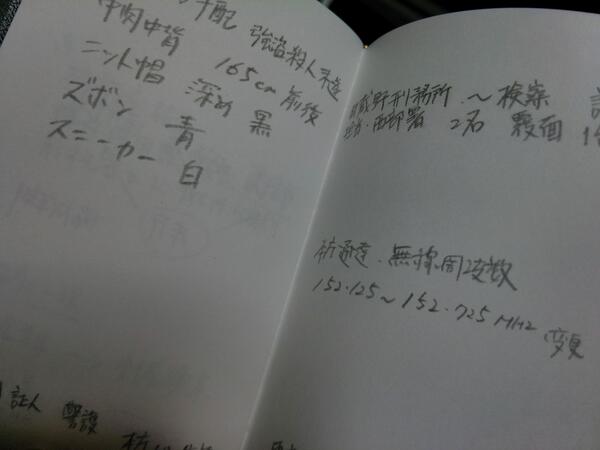 手配 強盗殺人未遂
中肉中背 165cm 前後
ニット帽 深め 黒
ズボン 青
スニーカー 白
証人 警護
蔵野刑務所 ～ 検案
西部署 2名 覆面
通達、無線周波数
152.125～152.725MHz 変更